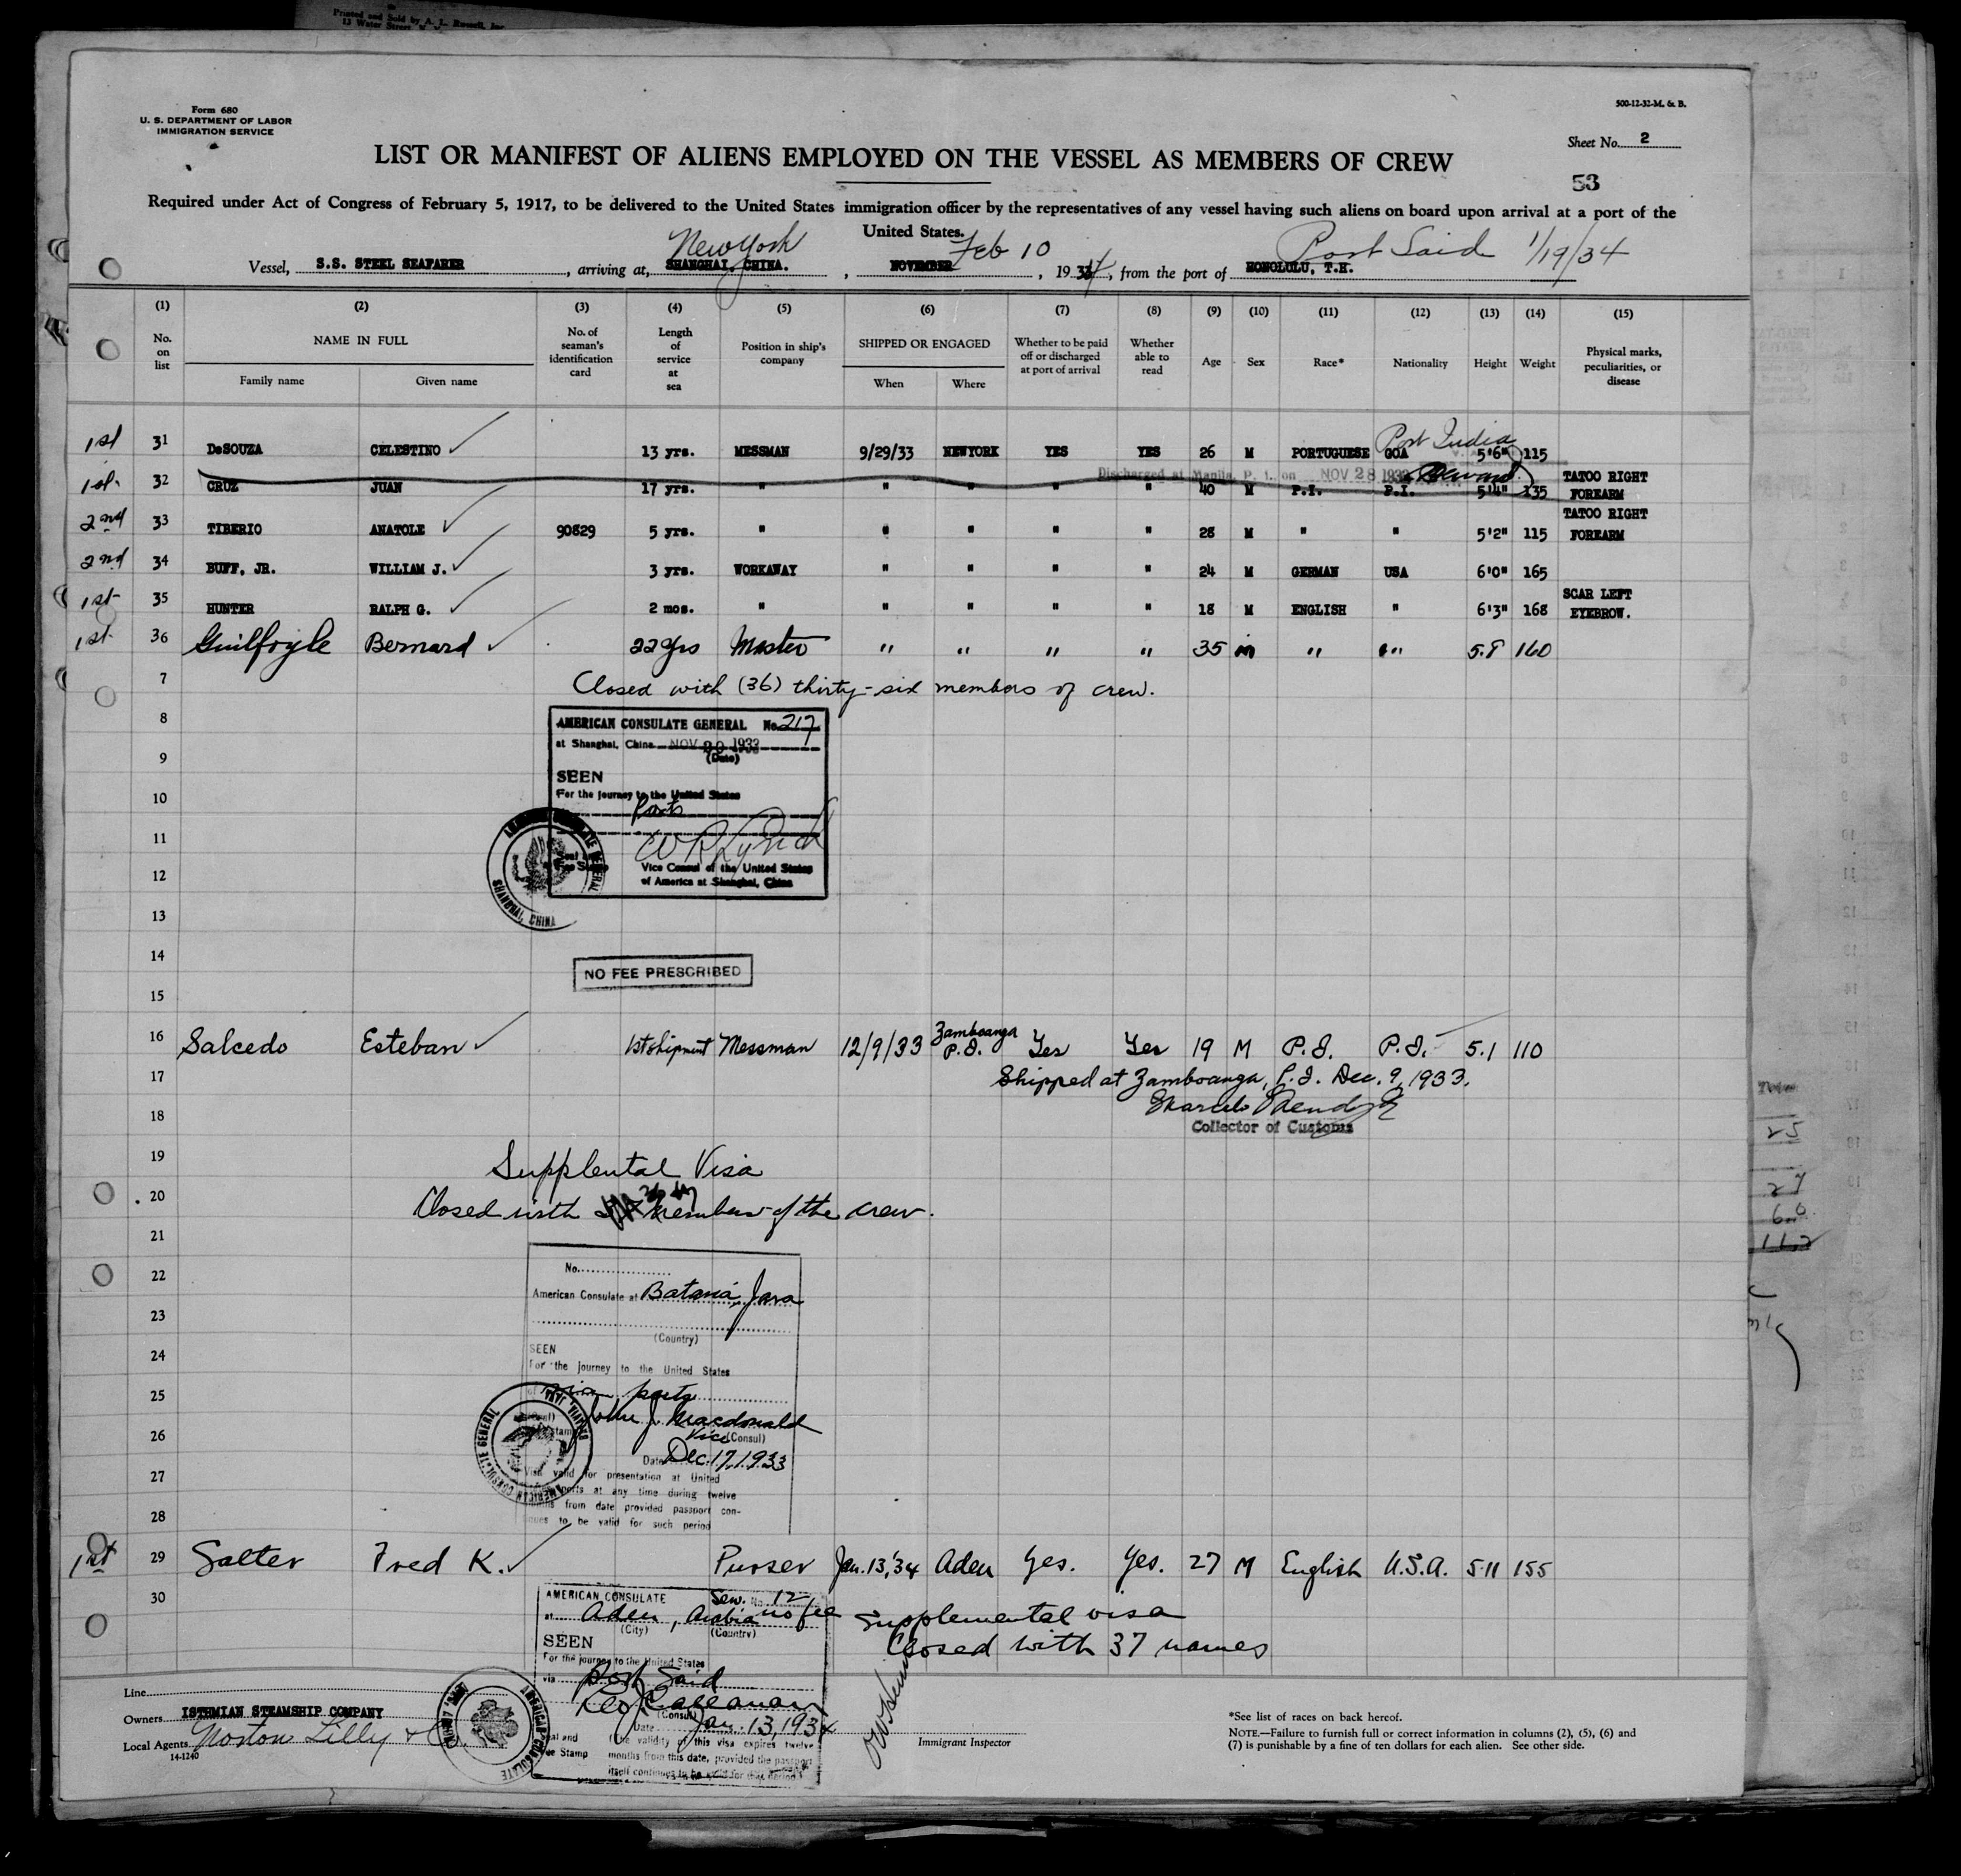 Printed and Sold by A. L. Russell, Inc
15 Water Street
Form 680
U. S. DEPARTMENT OF LABOR
IMMIGRATION SERVICE
500-12-32-M. & B.
Sheet No. 2
LIST OR MANIFEST OF ALIENS EMPLOYED ON THE VESSEL AS MEMBERS OF CREW
53
Required under Act of Congress of February 5, 1917, to be delivered to the United States immigration officer by the representatives of any vessel having such aliens on board upon arrival at a port of the
United States.
New York Feb 10 Port Said 1/19/34
Vessel, S.S. STEEL SEAFARER, arriving at, SHANGHAI, CHINA., NOVEMBER, 1934, from the port of HONOLULU, T.H.
(1) (2) (3) (4) (5) (6) (7) (8) (9) (10) (11) (12) (13) (14) (15)
No. on list
NAME IN FULL
Family name Given name
No. of seaman's identification card
Length of service at sea
Position in ship's company
SHIPPED OR ENGAGED
When Where
Whether to be paid off or discharged at port of arrival
Whether able to read
Age Sex Race* Nationality Height Weight
Physical marks, peculiarities, or disease
Port India
1st 31 DeSOUZA CELESTINO 13 yrs. MESSMAN 9/29/33 NEWYORK YES YES 26 M PORTUGUESE GOA 5'6" 115
Discharged at Manila, P. I. on NOV 28 1933
1st 32 CRUZ JUAN 17 yrs. " " " " " 40 M P.I. P.I. 5'4" 135 TATOO RIGHT FOREARM
2nd 33 TIBERIO ANATOLE 90829 5 yrs. " " " " " 28 M " " 5'2" 115 TATOO RIGHT FOREARM
2nd 34 BUFF, JR. WILLIAM J. 3 yrs. WORKAWAY " " " " 24 M GERMAN USA 6'0" 165
1st 35 HUNTER RALPH G. 2 mos. " " " " " 18 M ENGLISH " 6'3" 168 SCAR LEFT EYEBROW.
1st 36 Guilfoyle Bernard 22 yrs Master " " " " 35 m " " 5.8 160
7 Closed with (36) thirty-six members of crew.
8
AMERICAN CONSULATE GENERAL No. 217
at Shanghai, China NOV 20 1933
(Date)
9
SEEN
10
For the journey to the United States
Ports
11
12
Vice Consul of the United States
of America at Shanghai, China
AMERICAN CONSULATE GENERAL SHANGHAI, CHINA
13
14
NO FEE PRESCRIBED
15
16 Salcedo Esteban 1st shipment Messman 12/9/33 Zamboanga P.I. Yes Yes 19 M P.I. P.I. 5.1 110
17 Shipped at Zamboanga, P.I. Dec. 9, 1933.
18
Collector of Customs
19 Supplental Visa
20 Closed with members of the crew.
21
22
No.
American Consulate at Batavia, Java
23
(Country)
24
SEEN
For the journey to the United States
25
via ports
John J. Macdonald
26
Vice (Consul)
Date Dec. 17, 1933
27
Visa valid for presentation at United
ports at any time during twelve
months from date provided passport con-
28
tinues to be valid for such period
AMERICAN CONSULATE GENERAL BATAVIA, JAVA
1st 29 Salter Fred K. Purser Jan. 13, '34 Aden Yes. Yes. 27 M English U.S.A. 5-11 155
30
AMERICAN CONSULATE Serv. No. 12
at Aden, Arabia no fee
(City) (Country)
Supplemental visa
Closed with 37 names
SEEN
For the journey to the United States
via Port Said
Leo J. Callanan
(Consul)
Date Jan. 13, 1934
Seal and
Fee Stamp
(The validity of this visa expires twelve
months from this date, provided the passport
itself continues to be valid for that period)
AMERICAN CONSULATE
Line
Owners ISTHMIAN STEAMSHIP COMPANY
Local Agents Norton Lilly & Co.
14-1240
Immigrant Inspector
*See list of races on back hereof.
NOTE.—Failure to furnish full or correct information in columns (2), (5), (6) and
(7) is punishable by a fine of ten dollars for each alien. See other side.